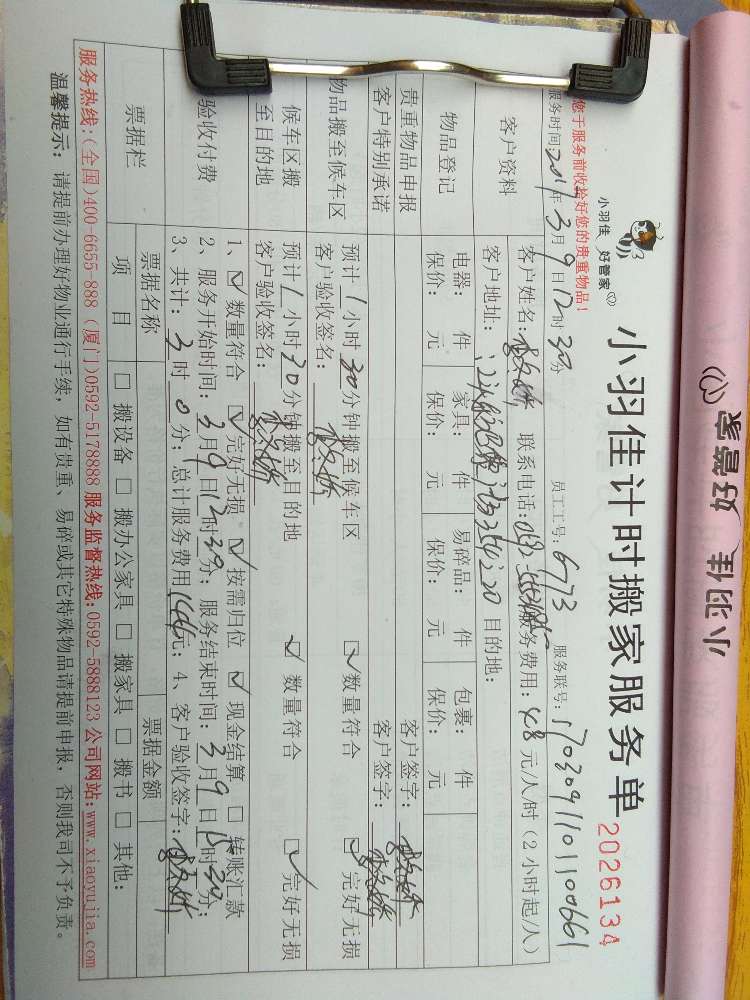 小羽佳 好管家
小羽佳 好管家
小羽佳计时搬家服务单
2026134
您于服务前收拾好您的贵重物品!
服务时间:2017年3月9日12时30分 员工工号:6773 服务联号:1703091101100661
客户资料
客户姓名: 联系电话: 服务费用:48元/人/时(2小时起/人)
客户地址: 目的地:
物品登记
电器: 件 家具: 件 易碎品: 件 包裹: 件
保价: 元 保价: 元 保价: 元 保价: 元
贵重物品申报 客户签字:
客户特别承诺 客户签字:
物品搬至候车区
预计1小时30分钟搬至候车区 ☑数量符合 ☑完好无损
客户验收签名:
候车区搬至目的地
预计1小时30分钟搬至目的地 ☑数量符合 ☑完好无损
客户验收签名:
验收付费
1、☑数量符合 ☑完好无损 ☑按需归位 ☑现金结算 □转账汇款
2、服务开始时间:3月9日12时30分;服务结束时间:3月9日15时30分;
3、共计:3时0分;总计服务费用144元;4、客户验收签字:
票据栏
票据名称 票据金额
项目 □搬设备 □搬办公家具 □搬家具 □搬书 □其他:
服务热线:(全国)400-6655-888 (厦门)0592-5178888 服务监督热线:0592-5888123 公司网站:www.xiaoyujia.com
温馨提示:请提前办理好物业通行手续,如有贵重、易碎或其它特殊物品请提前申报,否则我司不予负责。